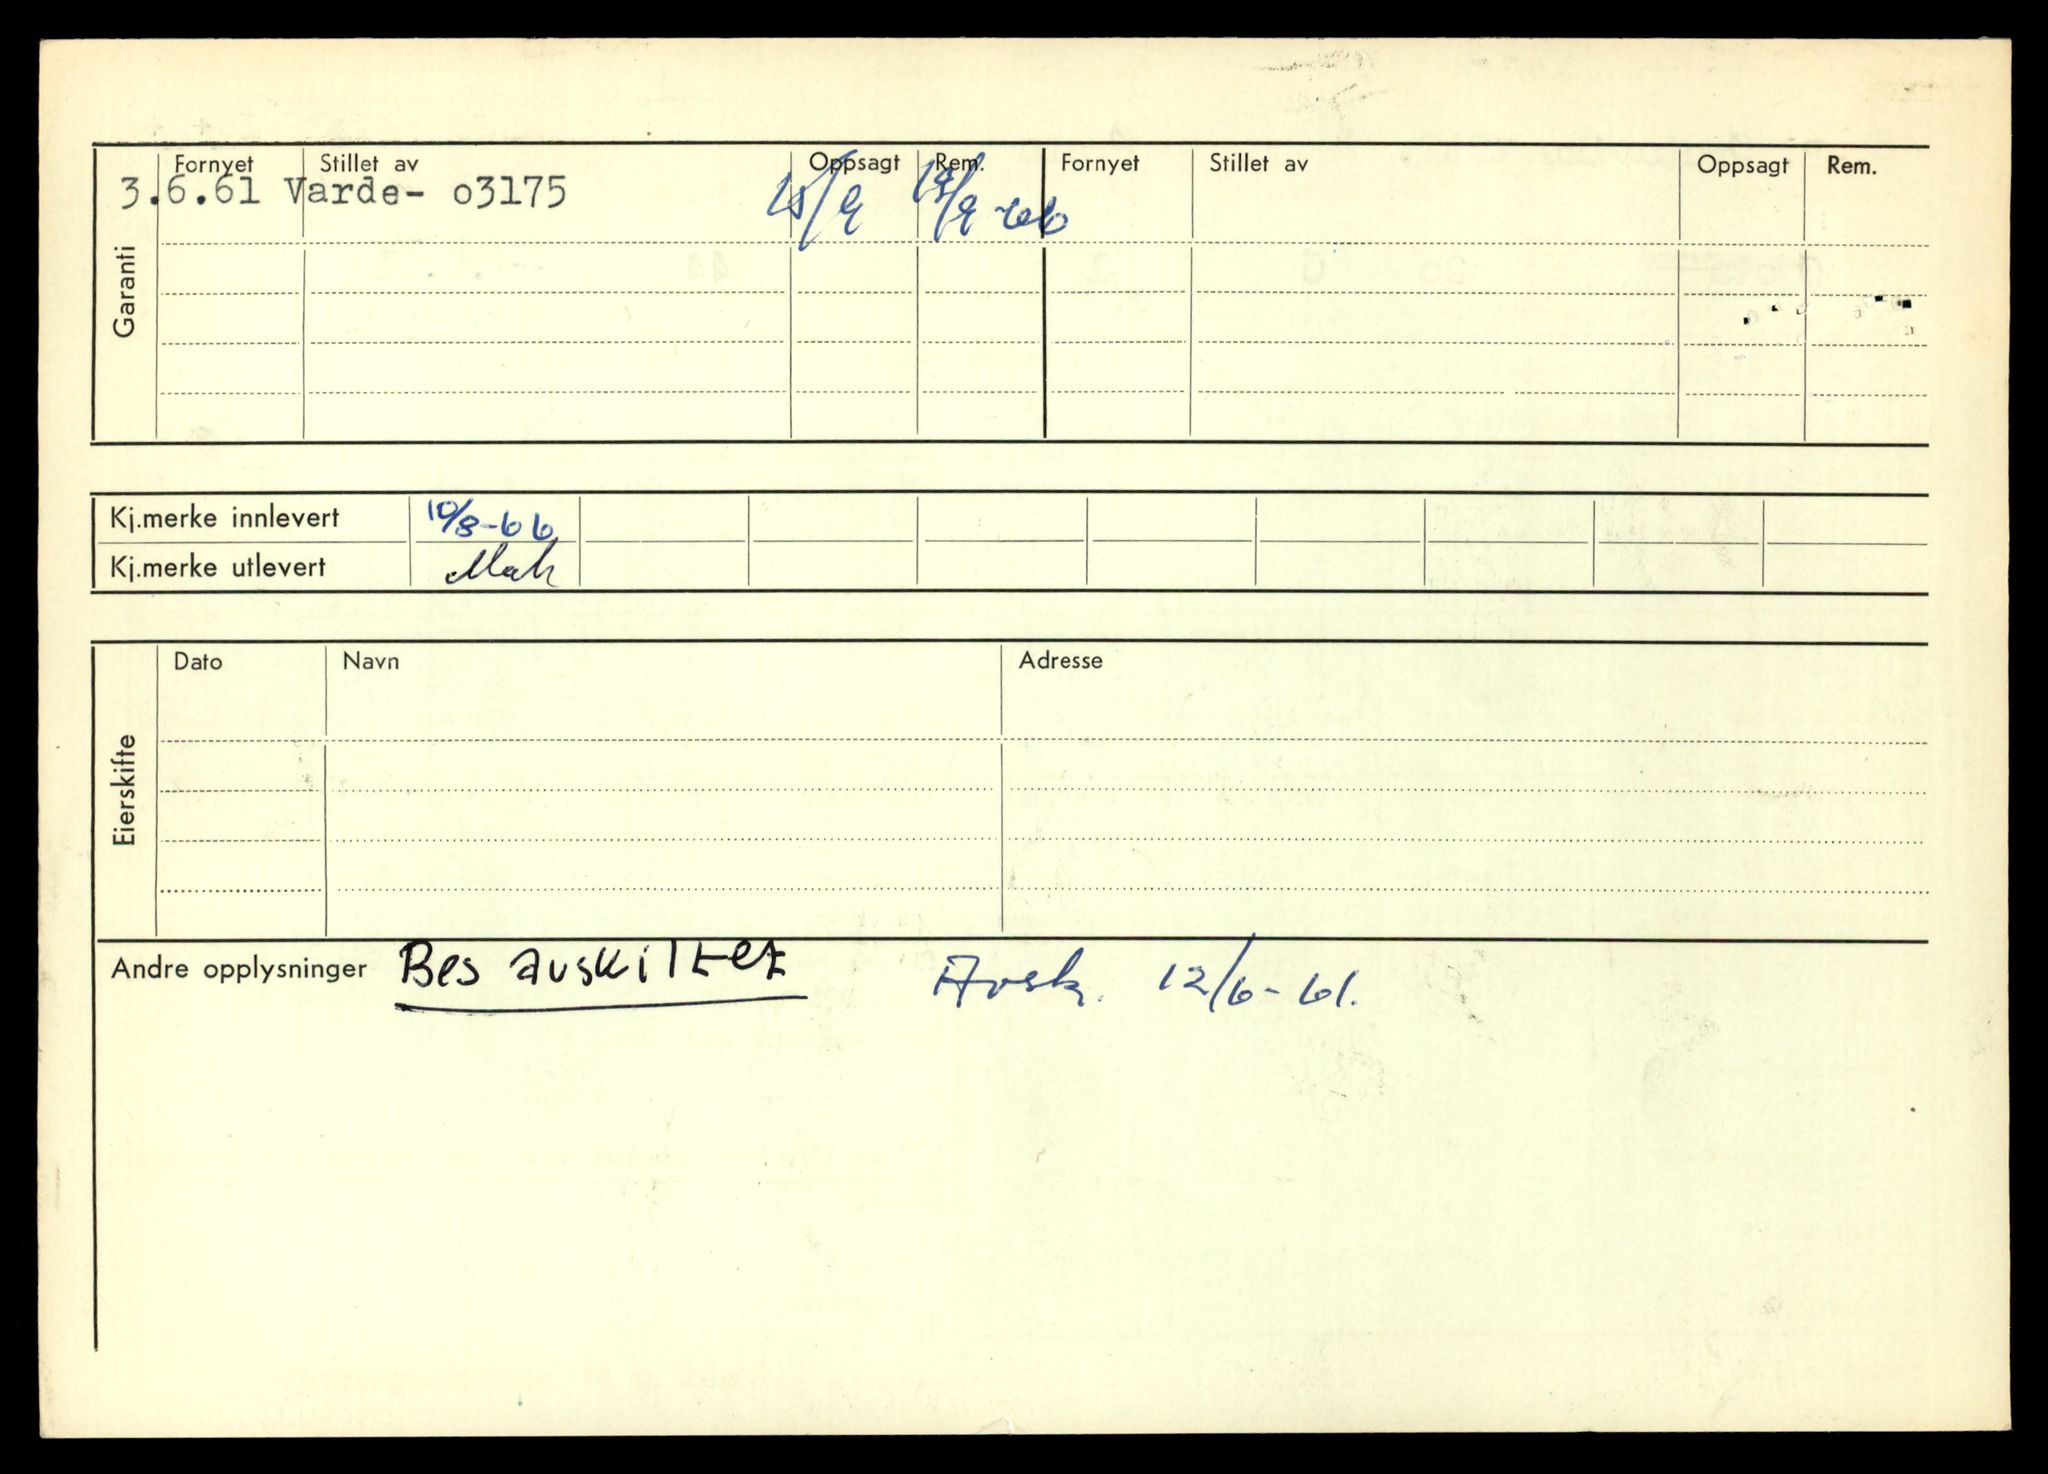 Fornyet Stillet av Oppsagt Rem. Fornyet Stillet av Oppsagt Rem.
3.6.61 Varde- o3175 15/9 15/9-66
Garanti
Kj.merke innlevert 10/8-66
Kj.merke utlevert
Dato Navn Adresse
Eierskifte
Andre opplysninger Bes avskiltet Avsk. 12/6-61.